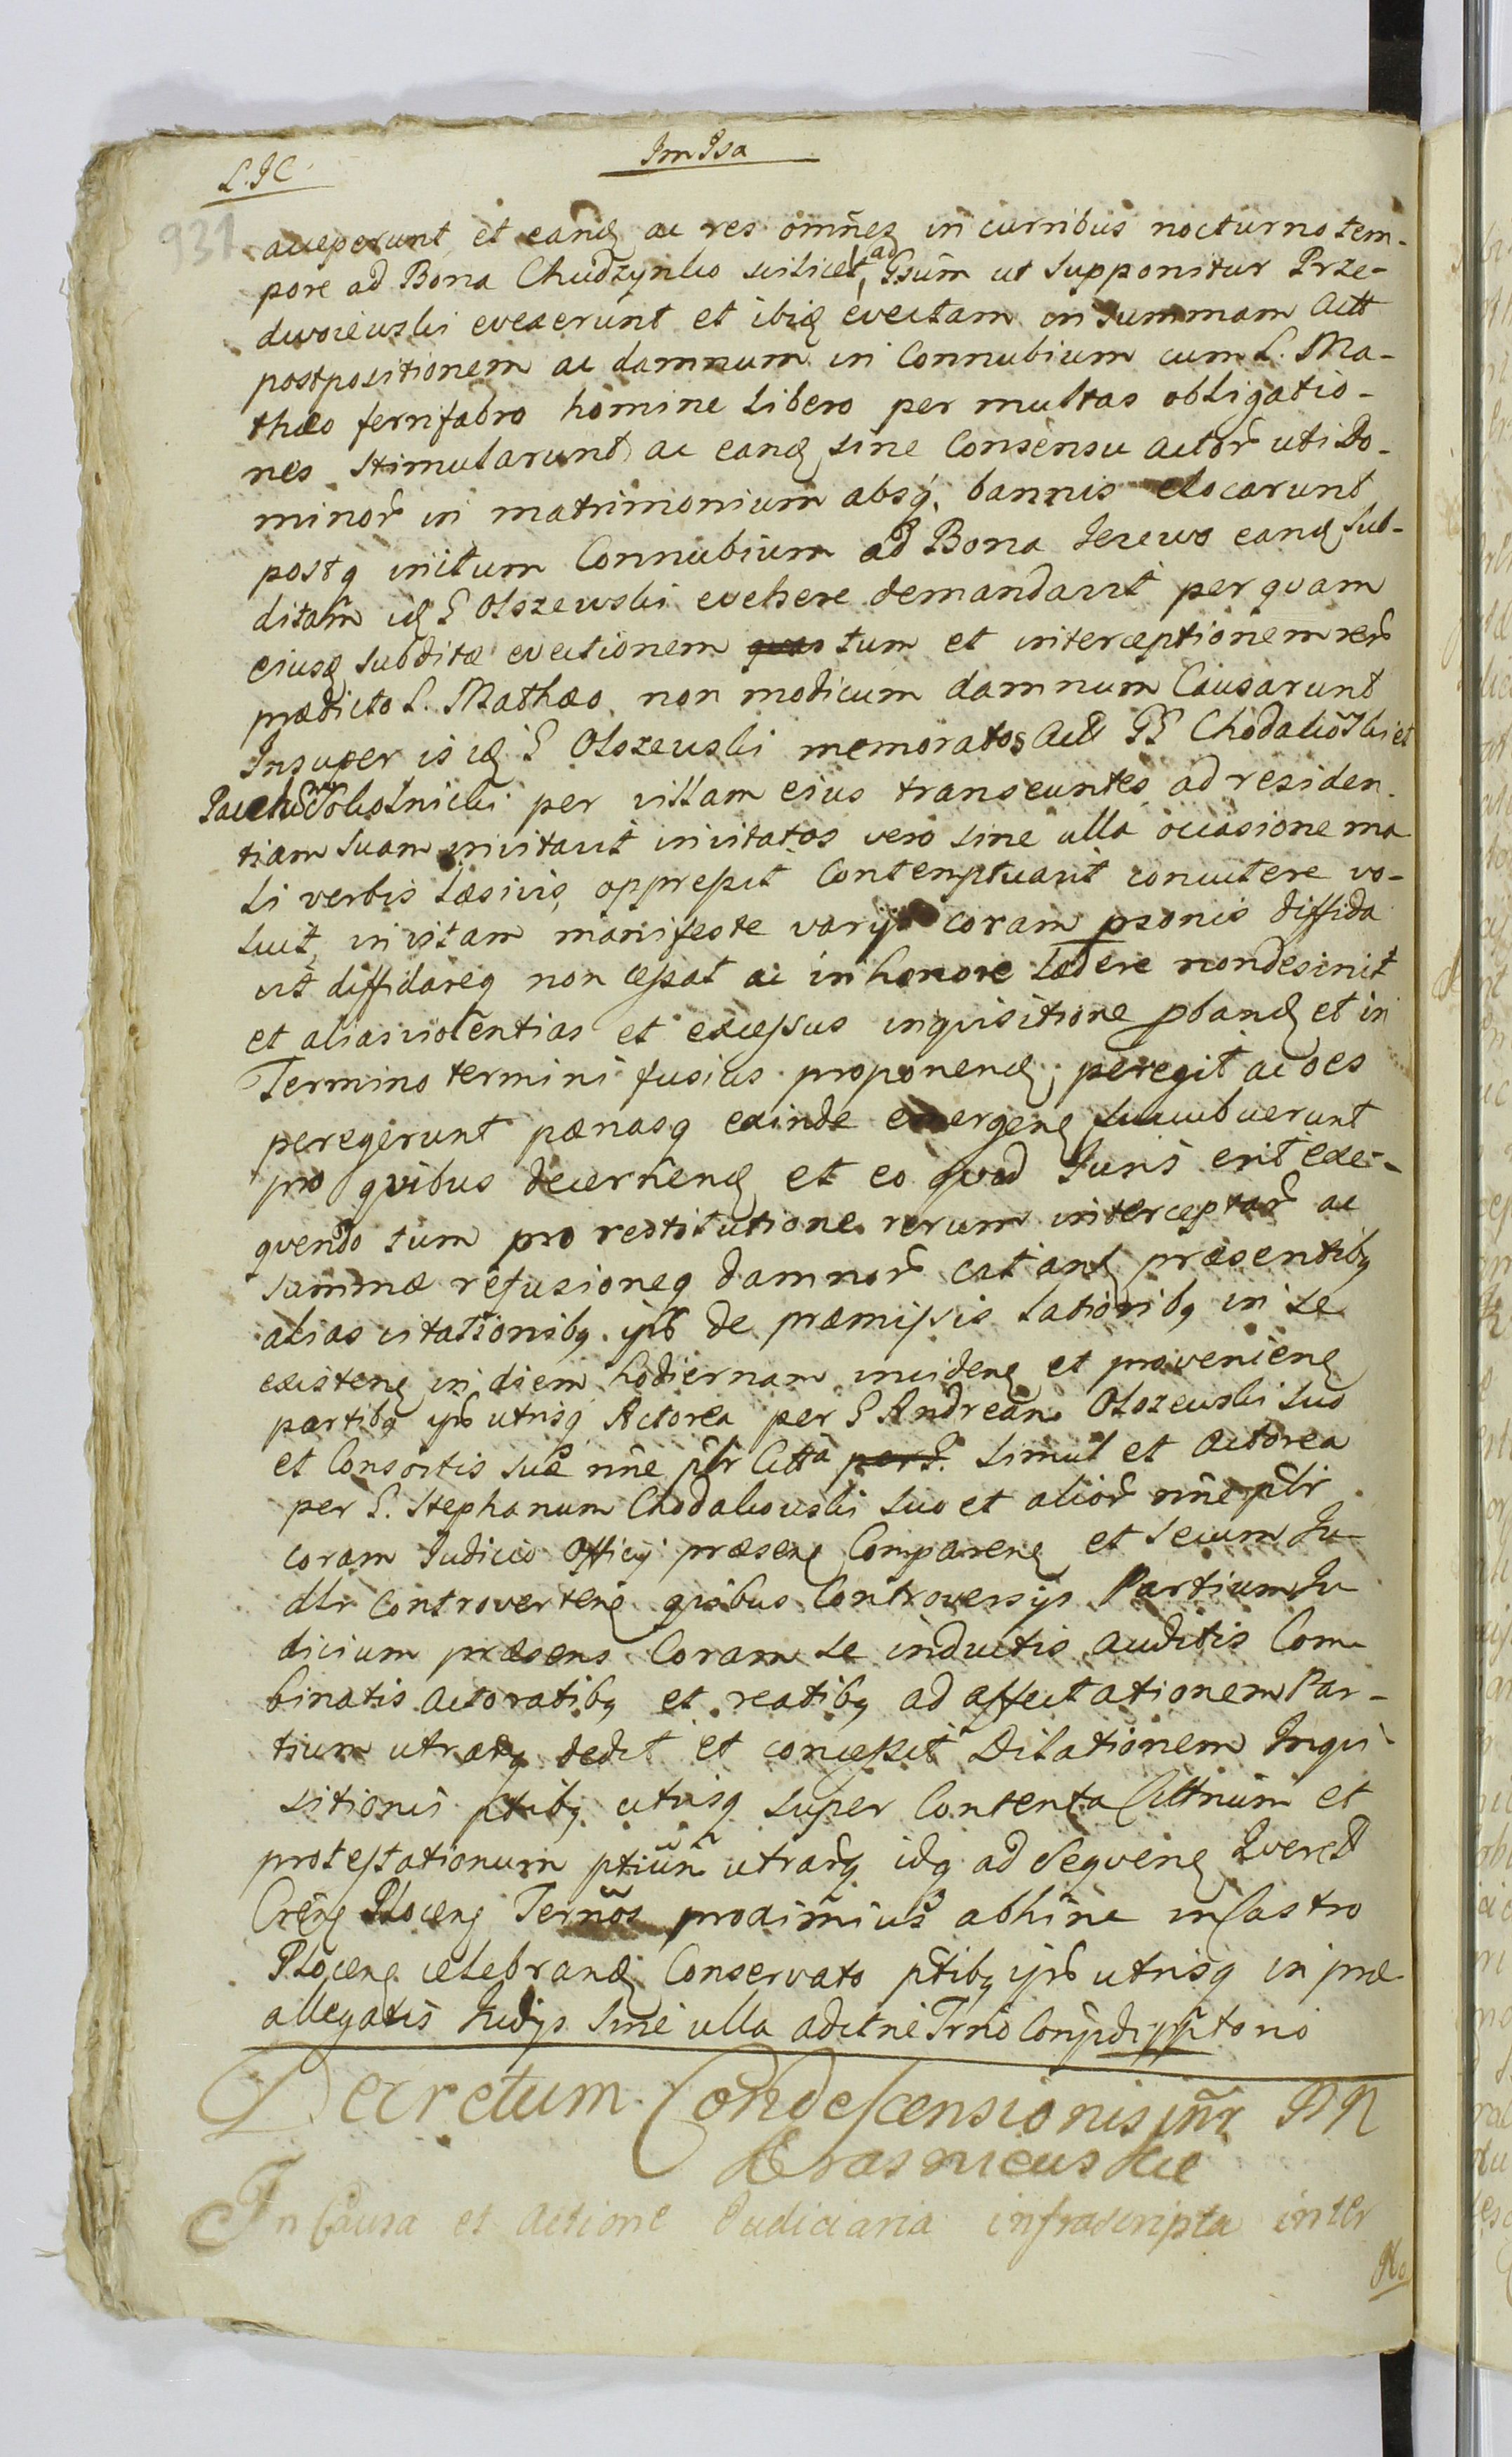 L. JC.
Im Jsa
931
acceperunt et eand ac res omnes in curribus nocturno tem-
pore ad Bona Chudzynko scilicet ad Gsum ut supponitur Prze-
dwoiewski evexerunt et ibid evectam in summam Actt
postpositionem ac damnum in Connubium cum L. Ma-
thæo ferrifabro homine libero per multas obligatio-
nes stimularunt ac eand sine Consensu actor uti Do-
minor in matrimonium absq. bannis elocarunt
postq initum Connubium ad Bona Jerewo eand sub-
ditam id G Olszewski evehere demandavit per quam
eiusd subditæ evectionem tum et interceptionem rer
prædicto L. Mathæo non modicum damnum Causarunt
Insuper is id G Olszewski memoratos Actt GG Chodakowski et
per villam eius transeuntes ad residen-
tiam suam invitavit invitatos vero sine ulla occasione ma
li verbis læsivis, oppressit Contemptuavit concutere vo-
luit, in vitam manifeste varys coram psonis diffida
vit diffidareq non cessat ac in honore lædere non desinit
et alias violentias et excessus inquisitione pband et in
Termino termini fusius proponend, peregit ac oes
peregerunt pænasq exinde emergen succubuerunt
pro quibus decernend et eo quod Juris erit exe-
quendo tum pro restitutione rerum interceptar ac
summæ refusioneq damnor cat and præsentibq
alias citationibq ipis de præmissis latioribq in se
existen in diem hodiernam inciden et provenien
partibq ipis utrisq Actorea per G Andream Olszewski suo
et Consortis suæ nne pltr Citta per G. simul et Actorea
per G. Stephanum Chodakowski suo et alior nne pltr
coram Judicio Officy præsen Comparen et secum Ju
dlr Controverten quibus Controversys Partium Ju
dicium præsens Coram se inductis auditis Com
binatis actoratibq et reatibq ad affectationem Par-
tium utrarq dedit et concessit Dilationem Inqui-
sitionis ptibq utrisq super Contenta Cittnum et
protestationum ptium utrarq idq ad sequen Querel
Cren Plocen Ternos proximius abhinc in Castro
Plocen celebrand Conservato ptibq ipis utrisq in præ
allegatis Judys sine ulla
Decretum Condescensionis inr NN
Krasnicuskie
In Causa et Actione Judiciaria infrascripta inter
No